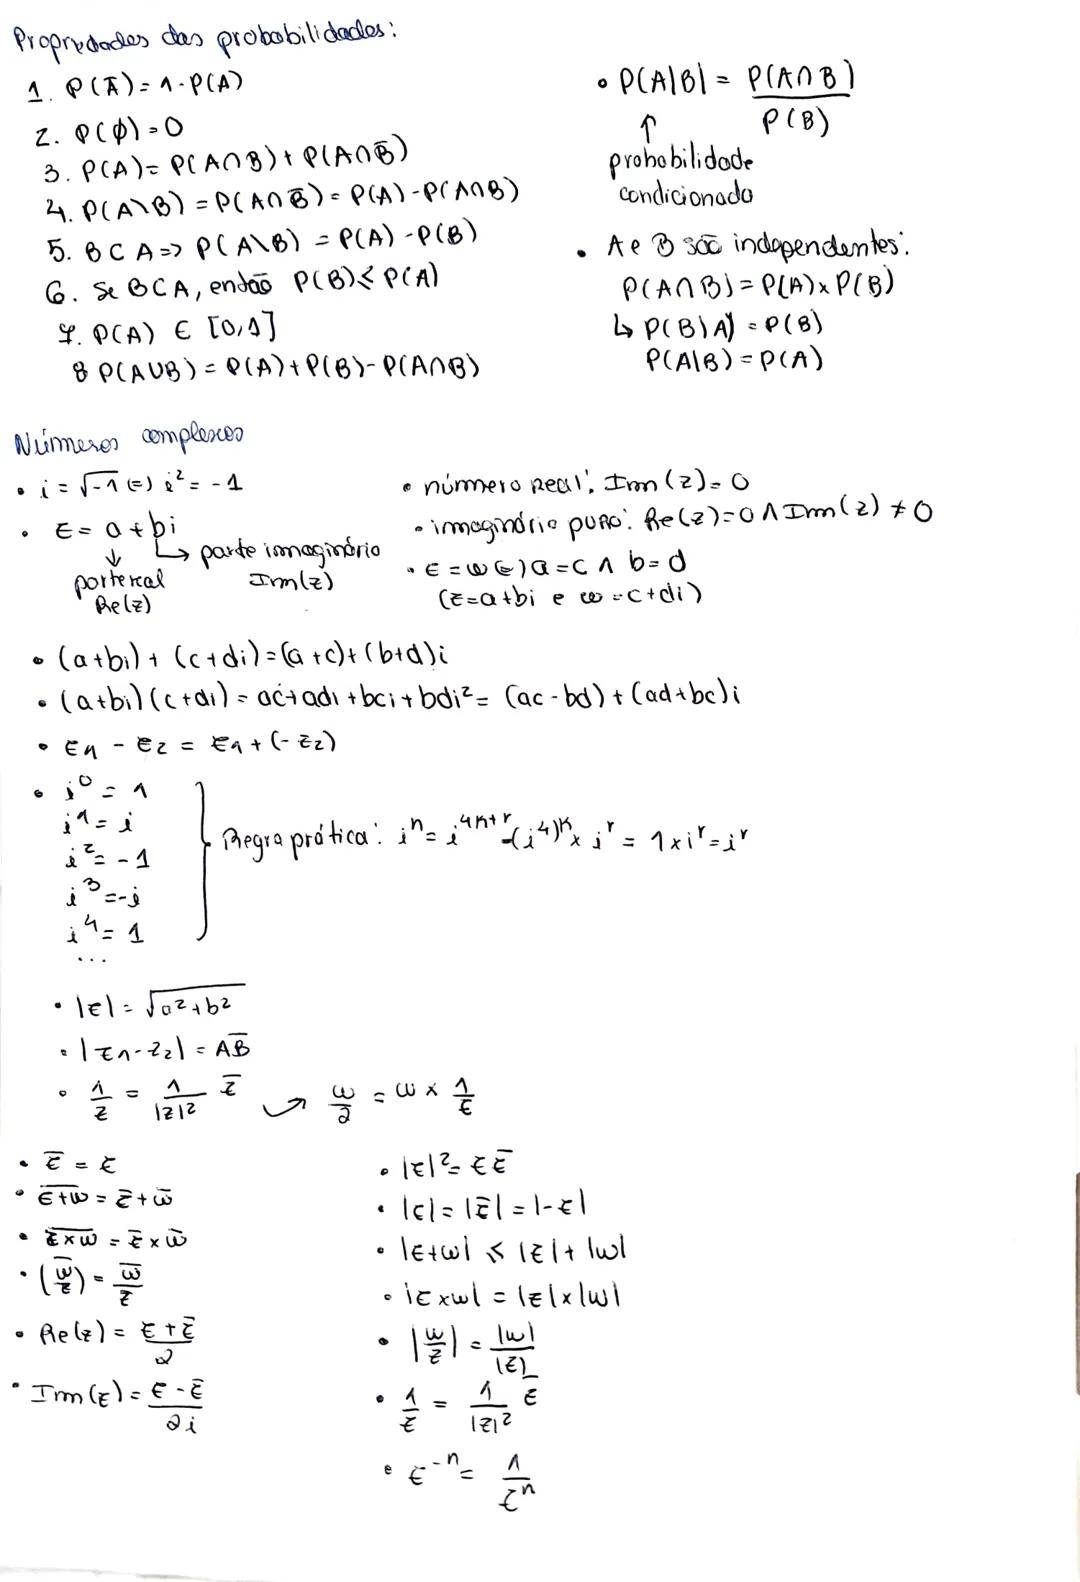 Propriedades das probabilidades:
1. P(Ā) = 1 - P(A)
2. P(∅) = 0
3. P(A) = P(A∩B) + P(A∩B̄)
4. P(A\B) = P(A∩B̄) = P(A) - P(A∩B)
5. B⊂A => P(A\B) = P(A) - P(B)
6. Se B⊂A, então P(B) ≤ P(A)
7. P(A) ∈ [0,1]
8 P(A∪B) = P(A) + P(B) - P(A∩B)
• P(A|B) = P(A∩B) / P(B)
↑
probabilidade
condicionada
• A e B são independentes:
P(A∩B) = P(A) × P(B)
↳ P(B|A) = P(B)
P(A|B) = P(A)
Números complexos
• i = √-1 (=) i² = -1
• z = a + bi
↓ ↳ parte imaginária
parte real Im(z)
Re(z)
• número real: Im(z) = 0
• imaginário puro: Re(z) = 0 ∧ Im(z) ≠ 0
• z = w (=) a = c ∧ b = d
(z = a + bi e w = c + di)
• (a+bi) + (c+di) = (a+c) + (b+d)i
• (a+bi)(c+di) = ac + adi + bci + bdi² = (ac - bd) + (ad + bc)i
• z₁ - z₂ = z₁ + (-z₂)
• i⁰ = 1
i¹ = i
i² = -1
i³ = -i
i⁴ = 1
...
Regra prática: iⁿ = i⁴ⁿ⁺ʳ = (i⁴)ⁿ × iʳ = 1 × iʳ = iʳ
• |z| = √a² + b²
• |z₁ - z₂| = A̅B̅
• 1/z = 1/|z|² z̄ ⤷ w/z = w × 1/z
• z̄ = z
• z̅+̅w̅ = z̄ + w̄
• z̅×̅w̅ = z̄ × w̄
• (w̅/̅z̅) = w̄/z̄
• Re(z) = z + z̄ / 2
• Im(z) = z - z̄ / 2i
• |z|² = z z̄
• |z| = |z̄| = |-z|
• |z+w| ≤ |z| + |w|
• |z×w| = |z| × |w|
• |w/z| = |w|/|z|
• 1/z = 1/|z|² z̄
• z⁻ⁿ = 1/zⁿ